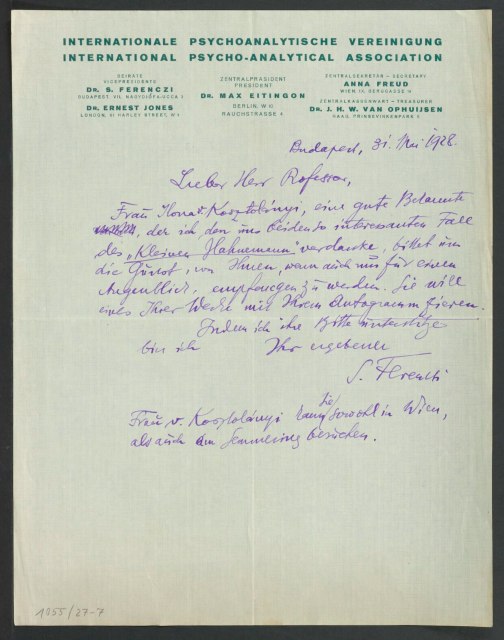 INTERNATIONALE PSYCHOANALYTISCHE VEREINIGUNG
INTERNATIONAL PSYCHO-ANALYTICAL ASSOCIATION
BEIRÄTE
VICEPRESIDENTS
DR. S. FERENCZI
BUDAPEST, VII. NAGYDIÓFA-UCCA 3
DR. ERNEST JONES
LONDON, 81 HARLEY STREET, W 1
ZENTRALPRÄSIDENT
PRESIDENT
DR. MAX EITINGON
BERLIN, W 10
RAUCHSTRASSE 4
ZENTRALSEKRETÄR – SECRETARY
ANNA FREUD
WIEN IX, BERGGASSE 19
ZENTRALKASSENWART – TREASURER
DR. J. H. W. VAN OPHUIJSEN
HAAG, PRINSEVINKENPARK 5
Budapest, 31. Mai 1928.
Lieber Herr Professor,
Frau Ilona Kosztolányi, eine gute Bekannte
der ich den uns beiden so interessanten Fall
des „Kleinen Hahnemann" verdanke, bittet um
die Gunst, von Ihnen, wenn auch nur für einen
Augenblick, empfangen zu werden. Sie will
eines Ihrer Werke mit Ihrem Autogramm zieren.
Indem ich ihre Bitte unterstütze
bin ich Ihr ergebener
S. Ferenczi
Frau v. Kosztolányi kann Sie sowohl in Wien,
als auch am Semmering besuchen.
1055/27-7